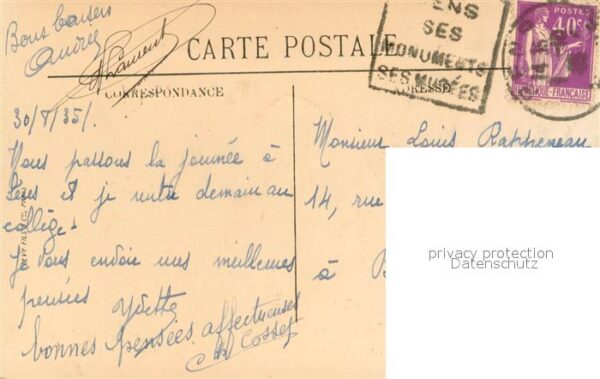 Bons baisers
Andrée
Laurent
CARTE POSTALE
ENS
SES
MONUMENTS
SES MUSÉES
POSTES
40c
QUE-FRANÇAISE
CORRESPONDANCE
ADRESSE
30/ /35/.
Nous passons la journée à
et je rentre demain au
collège.
Je vous envoie mes meilleures
pensées Ydette
bonnes pensées affectueuses
Cosset
Monsieur Louis Rappeneau
14, rue
à B
privacy protection
Datenschutz